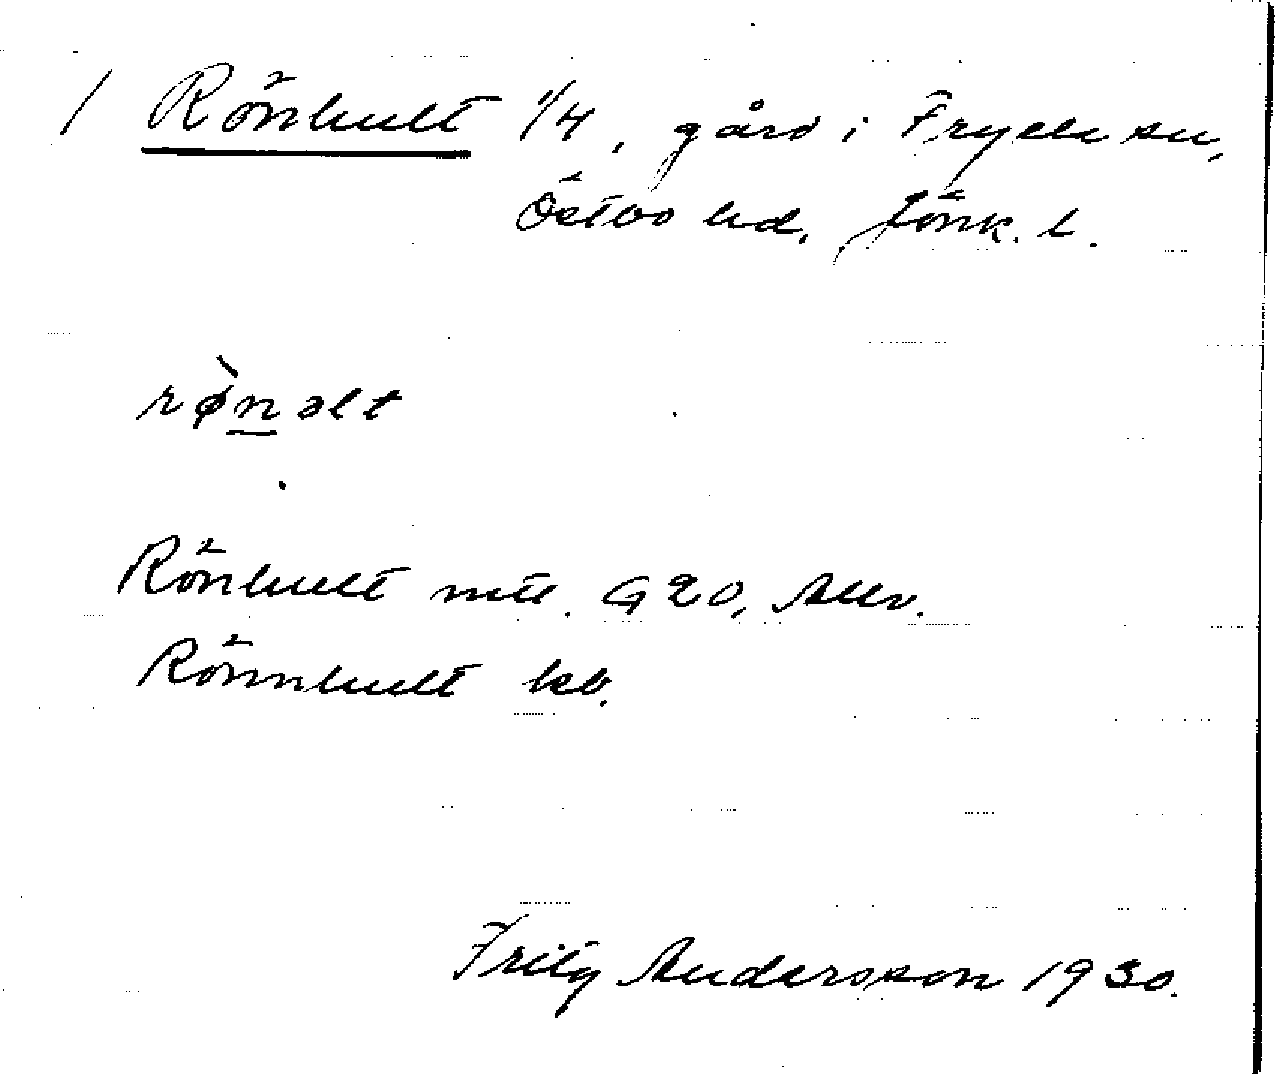 / Rönhult 1/4, gård i Fryele sn,
Östbo hd, Jönk. l.
rø̀nəlt
Rönhult mtl. G20, AUv.
Rönnhult kb.
Fritz Andersson 1930.